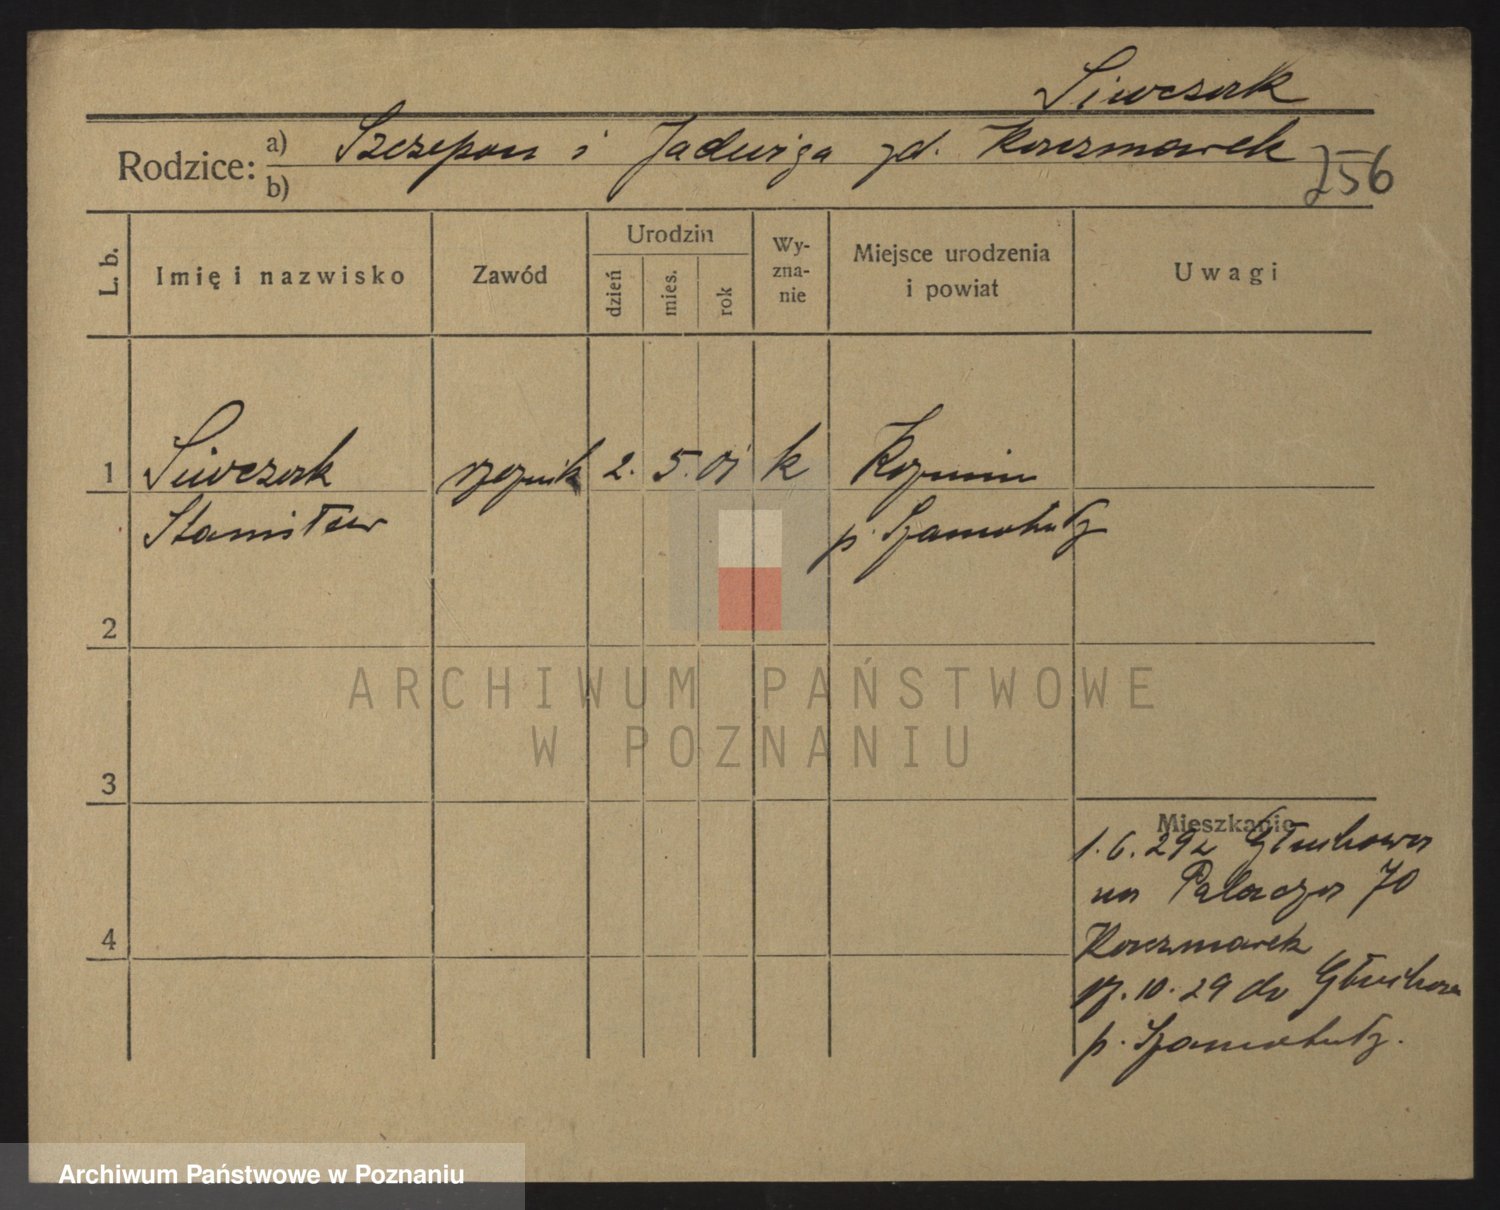 Siwczak
Rodzice: a) Szczepan i Jadwiga zd. Kaczmarek
b)
256
L. b.
Imię i nazwisko
Zawód
Urodzin
dzień
mies.
rok
Wy-
zna-
nie
Miejsce urodzenia
i powiat
Uwagi
1 Siwczak rzeźnik 2. 5. 01 k Koźmin
Stanisław p. Szamotuły
2
3
4
Mieszkanie
1.6.29 z Głuchowa
na Palacza 70
Kaczmarek
10.29 do
p. Szamotuły.
ARCHIWUM PAŃSTWOWE
W POZNANIU
Archiwum Państwowe w Poznaniu